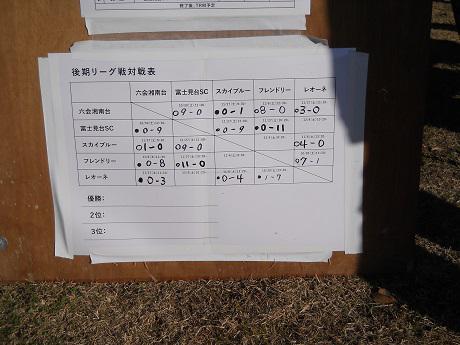 終了後、TRM予定
後期リーグ戦対戦表
六会湘南台 富士見台SC スカイブルー フレンドリー レオーネ
六会湘南台 ○9-0 ●0-1 ○8-0 ○3-0
富士見台SC ●0-9 ●0-9 ●0-11
スカイブルー ○1-0 ○9-0 ○4-0
フレンドリー ●0-8 ○11-0 ○7-1
レオーネ ●0-3 ●0-4 ●1-7
優勝:
2位:
3位: